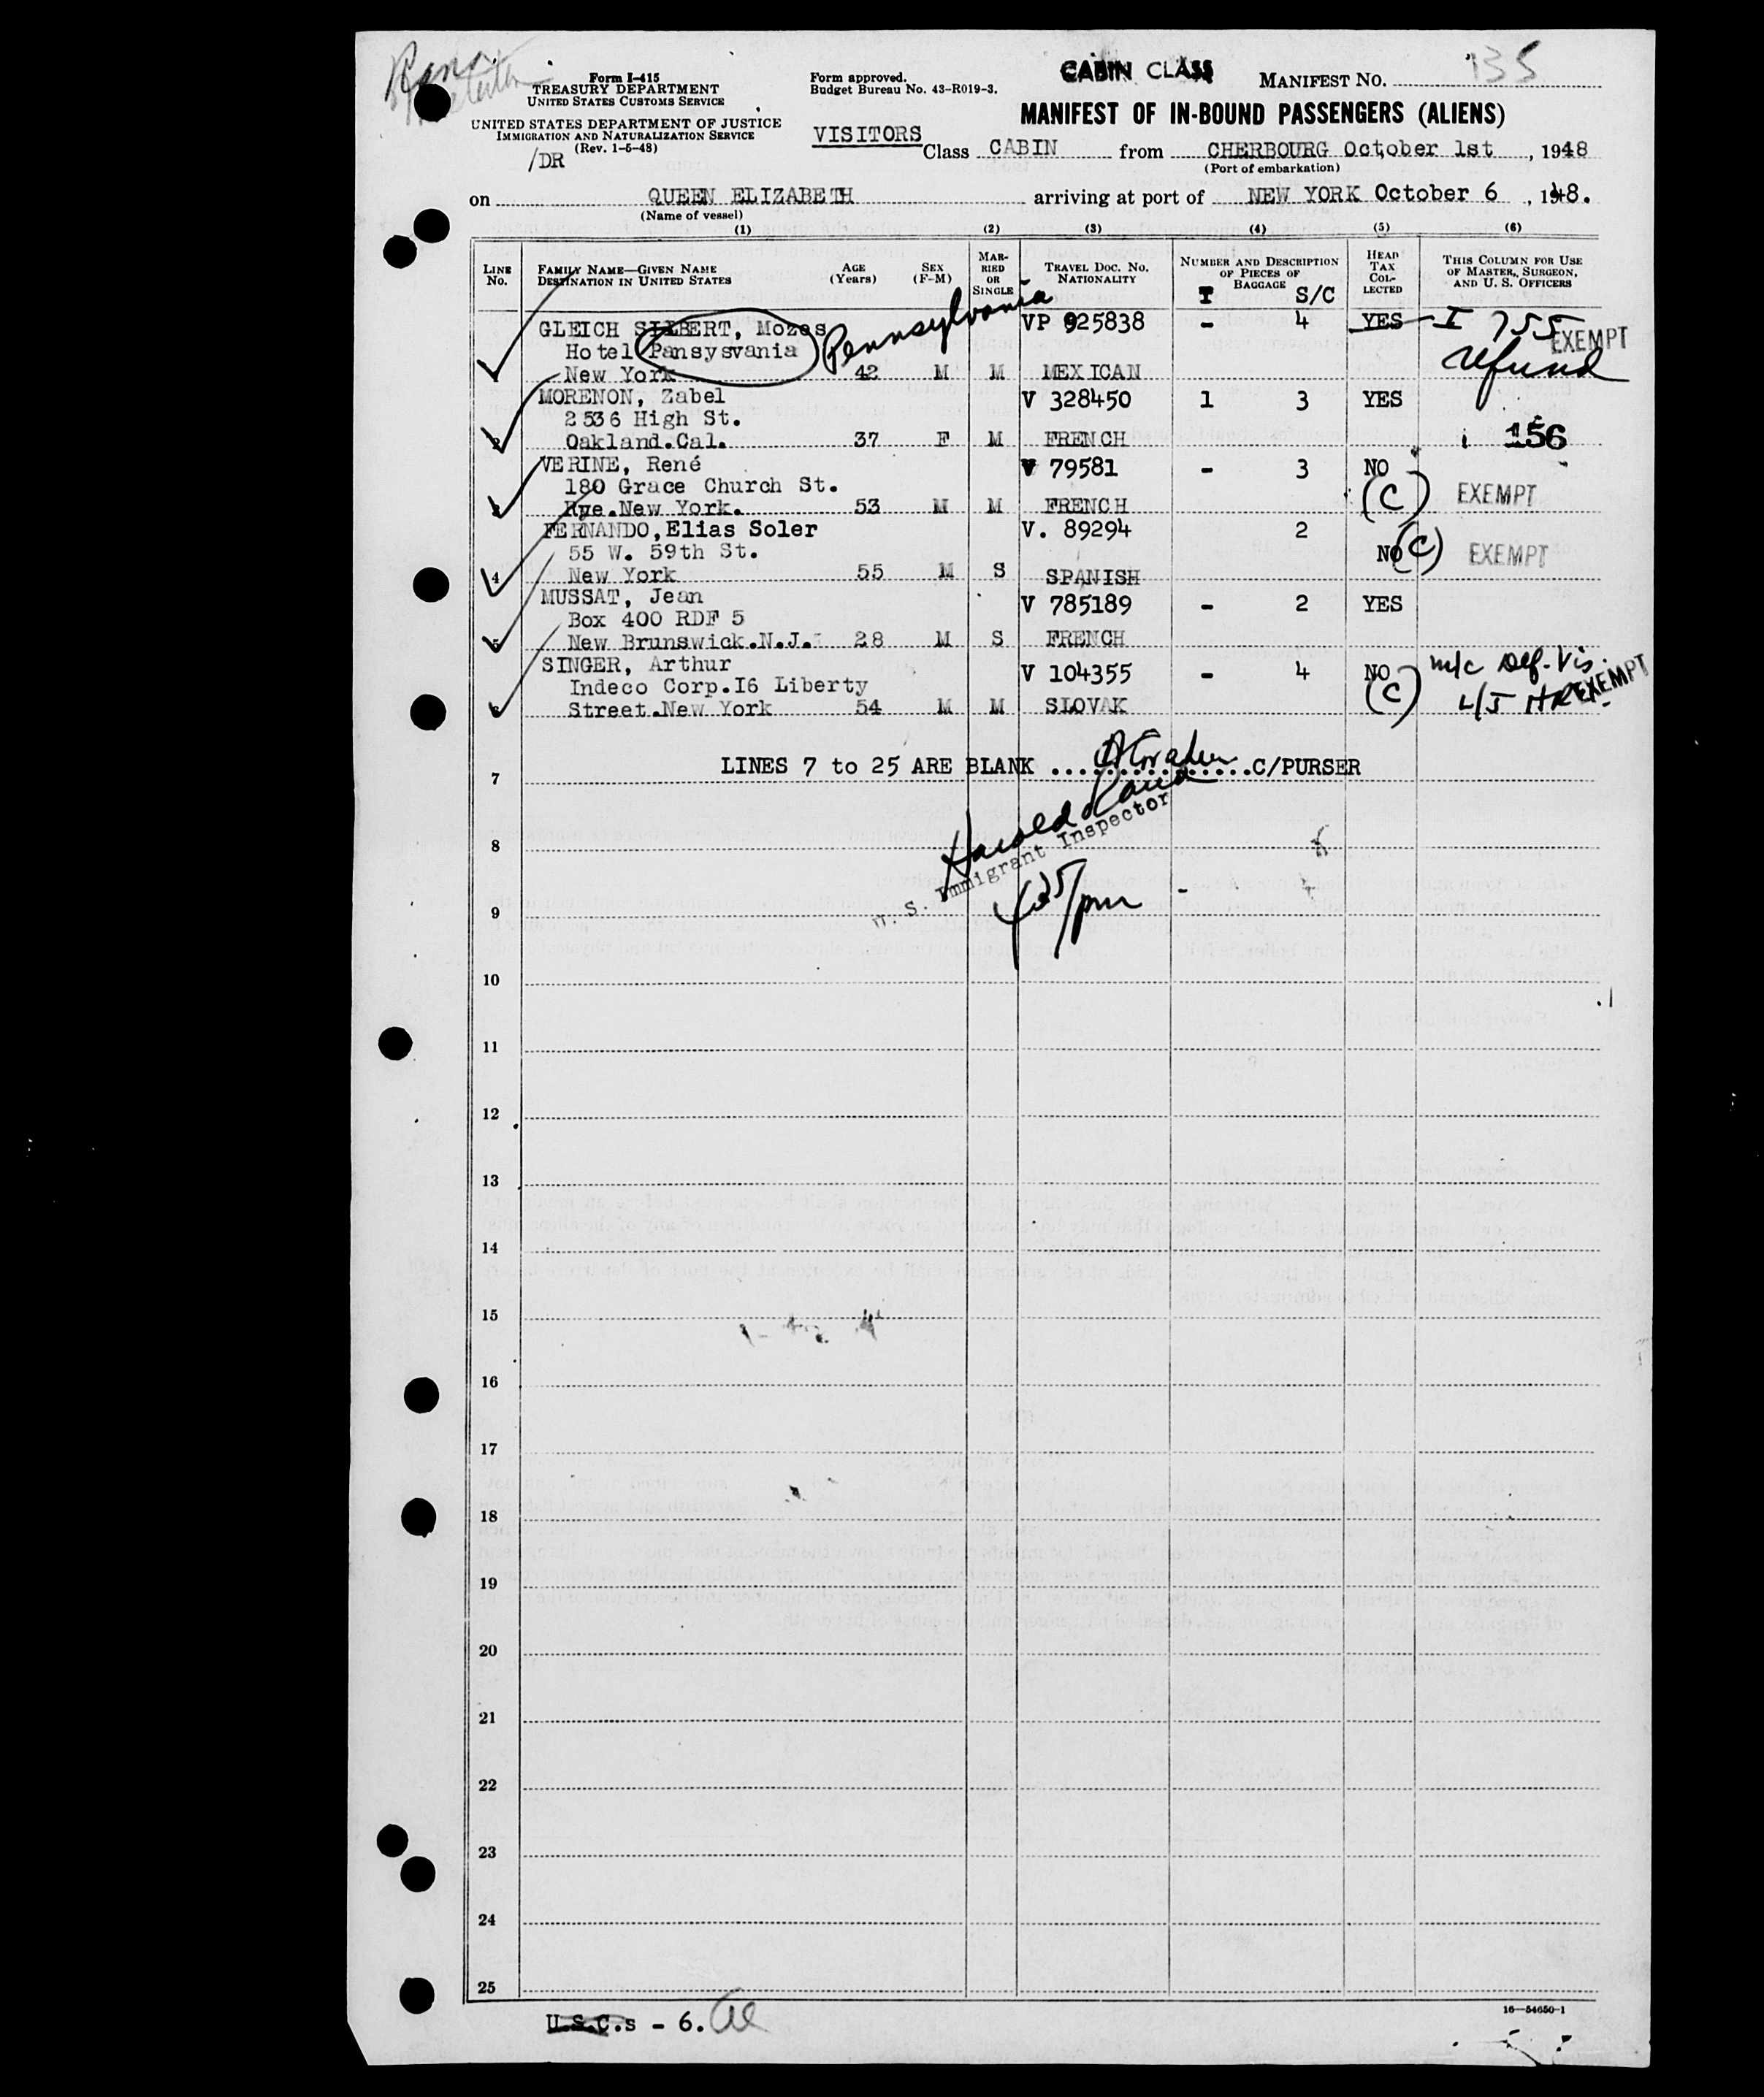 Form I-415
TREASURY DEPARTMENT
UNITED STATES CUSTOMS SERVICE
UNITED STATES DEPARTMENT OF JUSTICE
IMMIGRATION AND NATURALIZATION SERVICE
(Rev. 1-6-48)
/DR
Form approved.
Budget Bureau No. 43-R019-3.
CABIN CLASS
MANIFEST No. 135
MANIFEST OF IN-BOUND PASSENGERS (ALIENS)
VISITORS
Class CABIN from CHERBOURG October 1st, 1948
(Port of embarkation)
on QUEEN ELIZABETH arriving at port of NEW YORK October 6, 1948.
(Name of vessel)
(1) (2) (3) (4) (5) (6)
LINE No. FAMILY NAME—GIVEN NAME DESTINATION IN UNITED STATES AGE (Years) SEX (F-M) MARRIED OR SINGLE TRAVEL DOC. NO. NATIONALITY NUMBER AND DESCRIPTION OF PIECES OF BAGGAGE HEAD TAX COLLECTED THIS COLUMN FOR USE OF MASTER, SURGEON, AND U. S. OFFICERS
T S/C
GLEICH SILBERT, Mozes VP 925838 - 4 YES I 755 EXEMPT
Hotel Pansysvania Pennsylvania refund
New York 42 M M MEXICAN
MORENON, Zabel V 328450 1 3 YES
2536 High St.
2 Oakland.Cal. 37 F M FRENCH 156
VERINE, René V 79581 - 3 NO
180 Grace Church St. (C) EXEMPT
3 Rye.New York. 53 M M FRENCH
FERNANDO, Elias Soler V. 89294 2
55 W. 59th St. NO (C) EXEMPT
4 New York 55 M S SPANISH
MUSSAT, Jean V 785189 - 2 YES
Box 400 RDF 5
5 New Brunswick.N.J. 28 M S FRENCH
SINGER, Arthur V 104355 - 4 NO m/c Def. Vis.
Indeco Corp.I6 Liberty (C) EXEMPT
6 Street.New York 54 M M SLOVAK
LINES 7 to 25 ARE BLANK ................C/PURSER
7
Harold
U. S. Immigrant Inspector
8
pm
9
10
11
12
13
14
15
16
17
18
19
20
21
22
23
24
25
16—54650-1
U.S.C.s - 6.